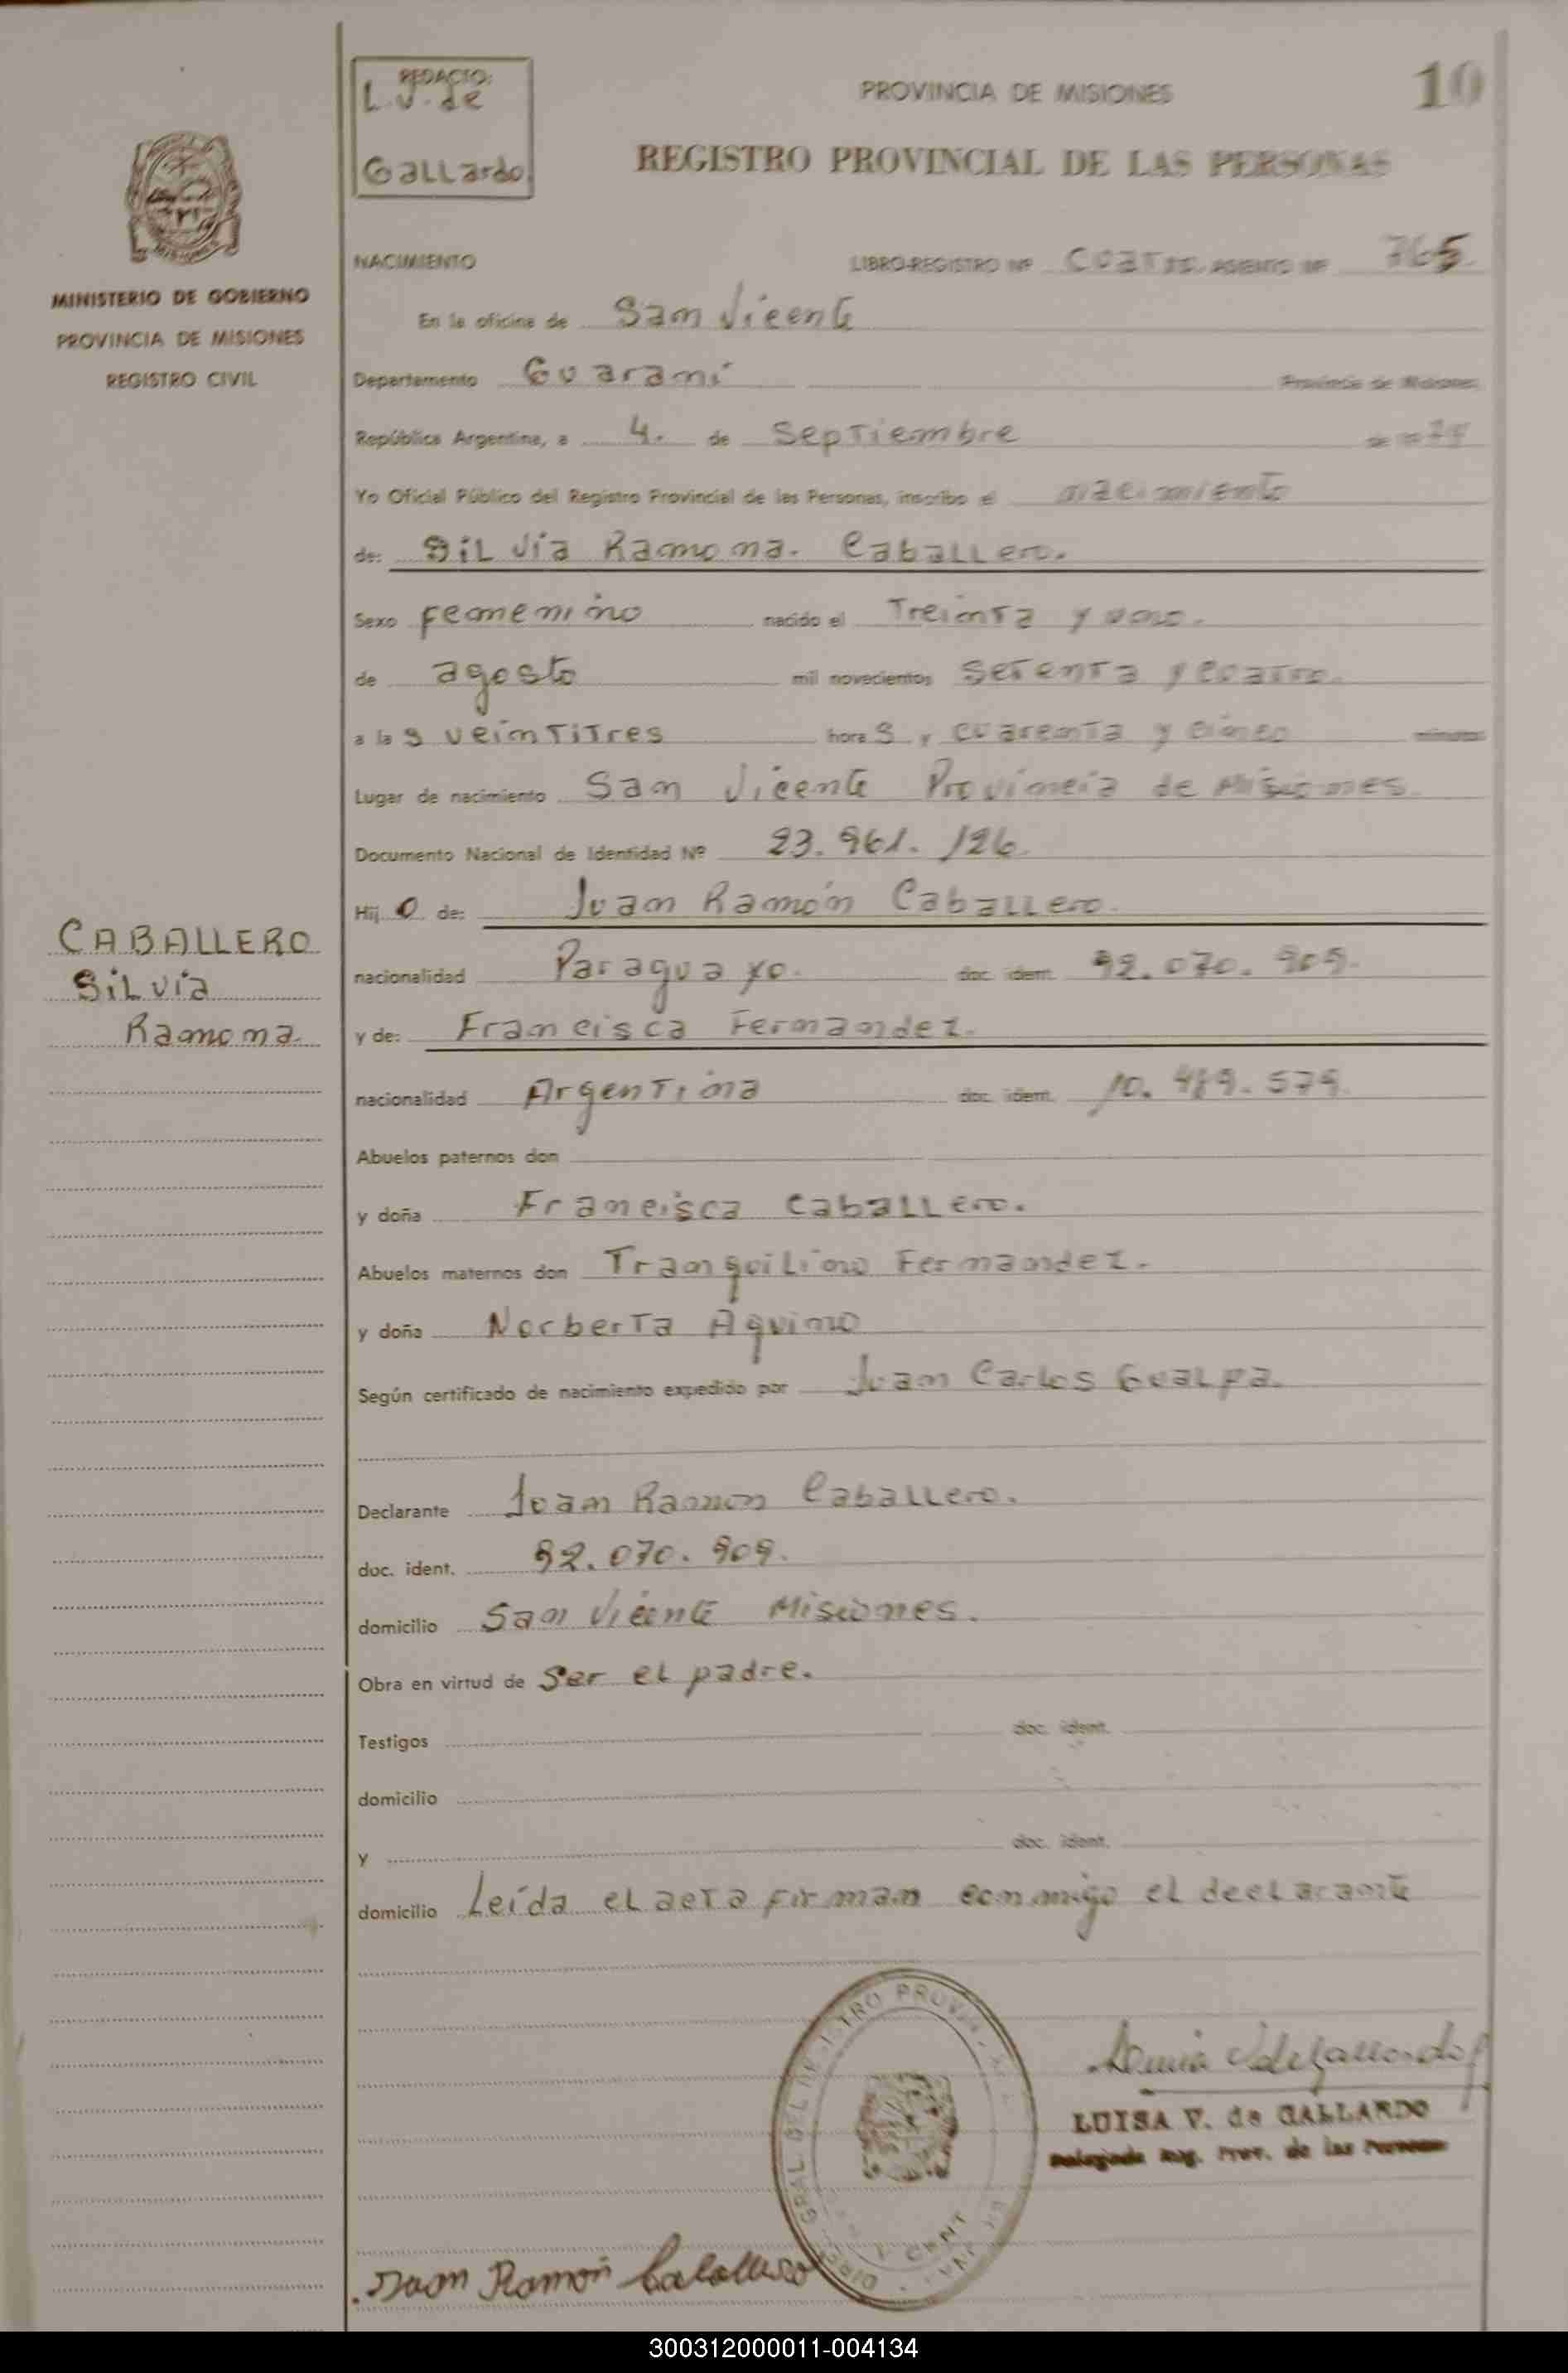 REDACTO:
L.V. de
Gallardo
PROVINCIA DE MISIONES
10
REGISTRO PROVINCIAL DE LAS PERSONAS
MINISTERIO DE GOBIERNO
PROVINCIA DE MISIONES
REGISTRO CIVIL
NACIMIENTO LIBRO-REGISTRO Nº ASIENTO Nº 765
En la oficina de San Vicente
Departamento Guaraní Provincia de Misiones
República Argentina, a 4. de Septiembre
Yo Oficial Público del Registro Provincial de las Personas, inscribo el nacimiento
de: Silvia Ramona. Caballero.
Sexo femenino nacido el Treinta y uno.
de agosto mil novecientos setenta y cuatro.
a las veintitres horas y cuarenta y cinco minutos
Lugar de nacimiento San Vicente Provincia de Misiones.
Documento Nacional de Identidad Nº 23.961.126
Hijo de: Juan Ramón Caballero.
nacionalidad Paraguayo. doc. ident. 92.070.909.
y de: Francisca Fernandez.
nacionalidad Argentina doc. ident. 10.489.579.
CABALLERO
Silvia
Ramona.
Abuelos paternos don
y doña Francisca Caballero.
Abuelos maternos don Tranquilino Fernandez.
y doña Norberta Aquino
Según certificado de nacimiento expedido por Juan Carlos Gualpa.
Declarante Juan Ramón Caballero.
doc. ident. 92.070.909.
domicilio San Vicente Misiones.
Obra en virtud de ser el padre.
Testigos doc. ident.
domicilio
y doc. ident.
domicilio Leída el acta firman conmigo el declarante
LUISA V. de GALLARDO
Delegada Reg. Prov. de las Personas
Juan Ramón Caballero
300312000011-004134